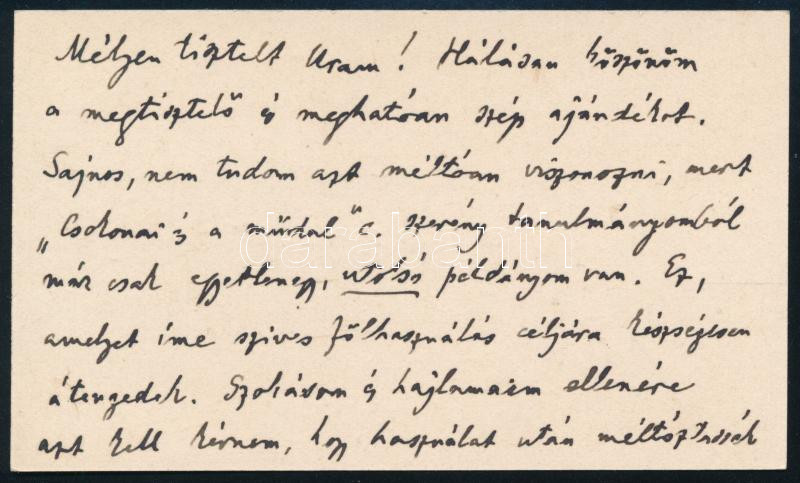 Mélyen tisztelt Uram! Hálásan köszönöm
a megtisztelő és meghatóan szép ajándékot.
Sajnos, nem tudom azt méltóan viszonozni, mert
„Csokonai és a műdal" c. szerény tanulmányomból
már csak egyetlenegy, utolsó példányom van. Ez,
amelyet íme szives fölhasználás céljára készségesen
átengedek. Szokásom és hajlamaim ellenére
azt kell kérnem, hogy használat után méltóztassék
darabanth